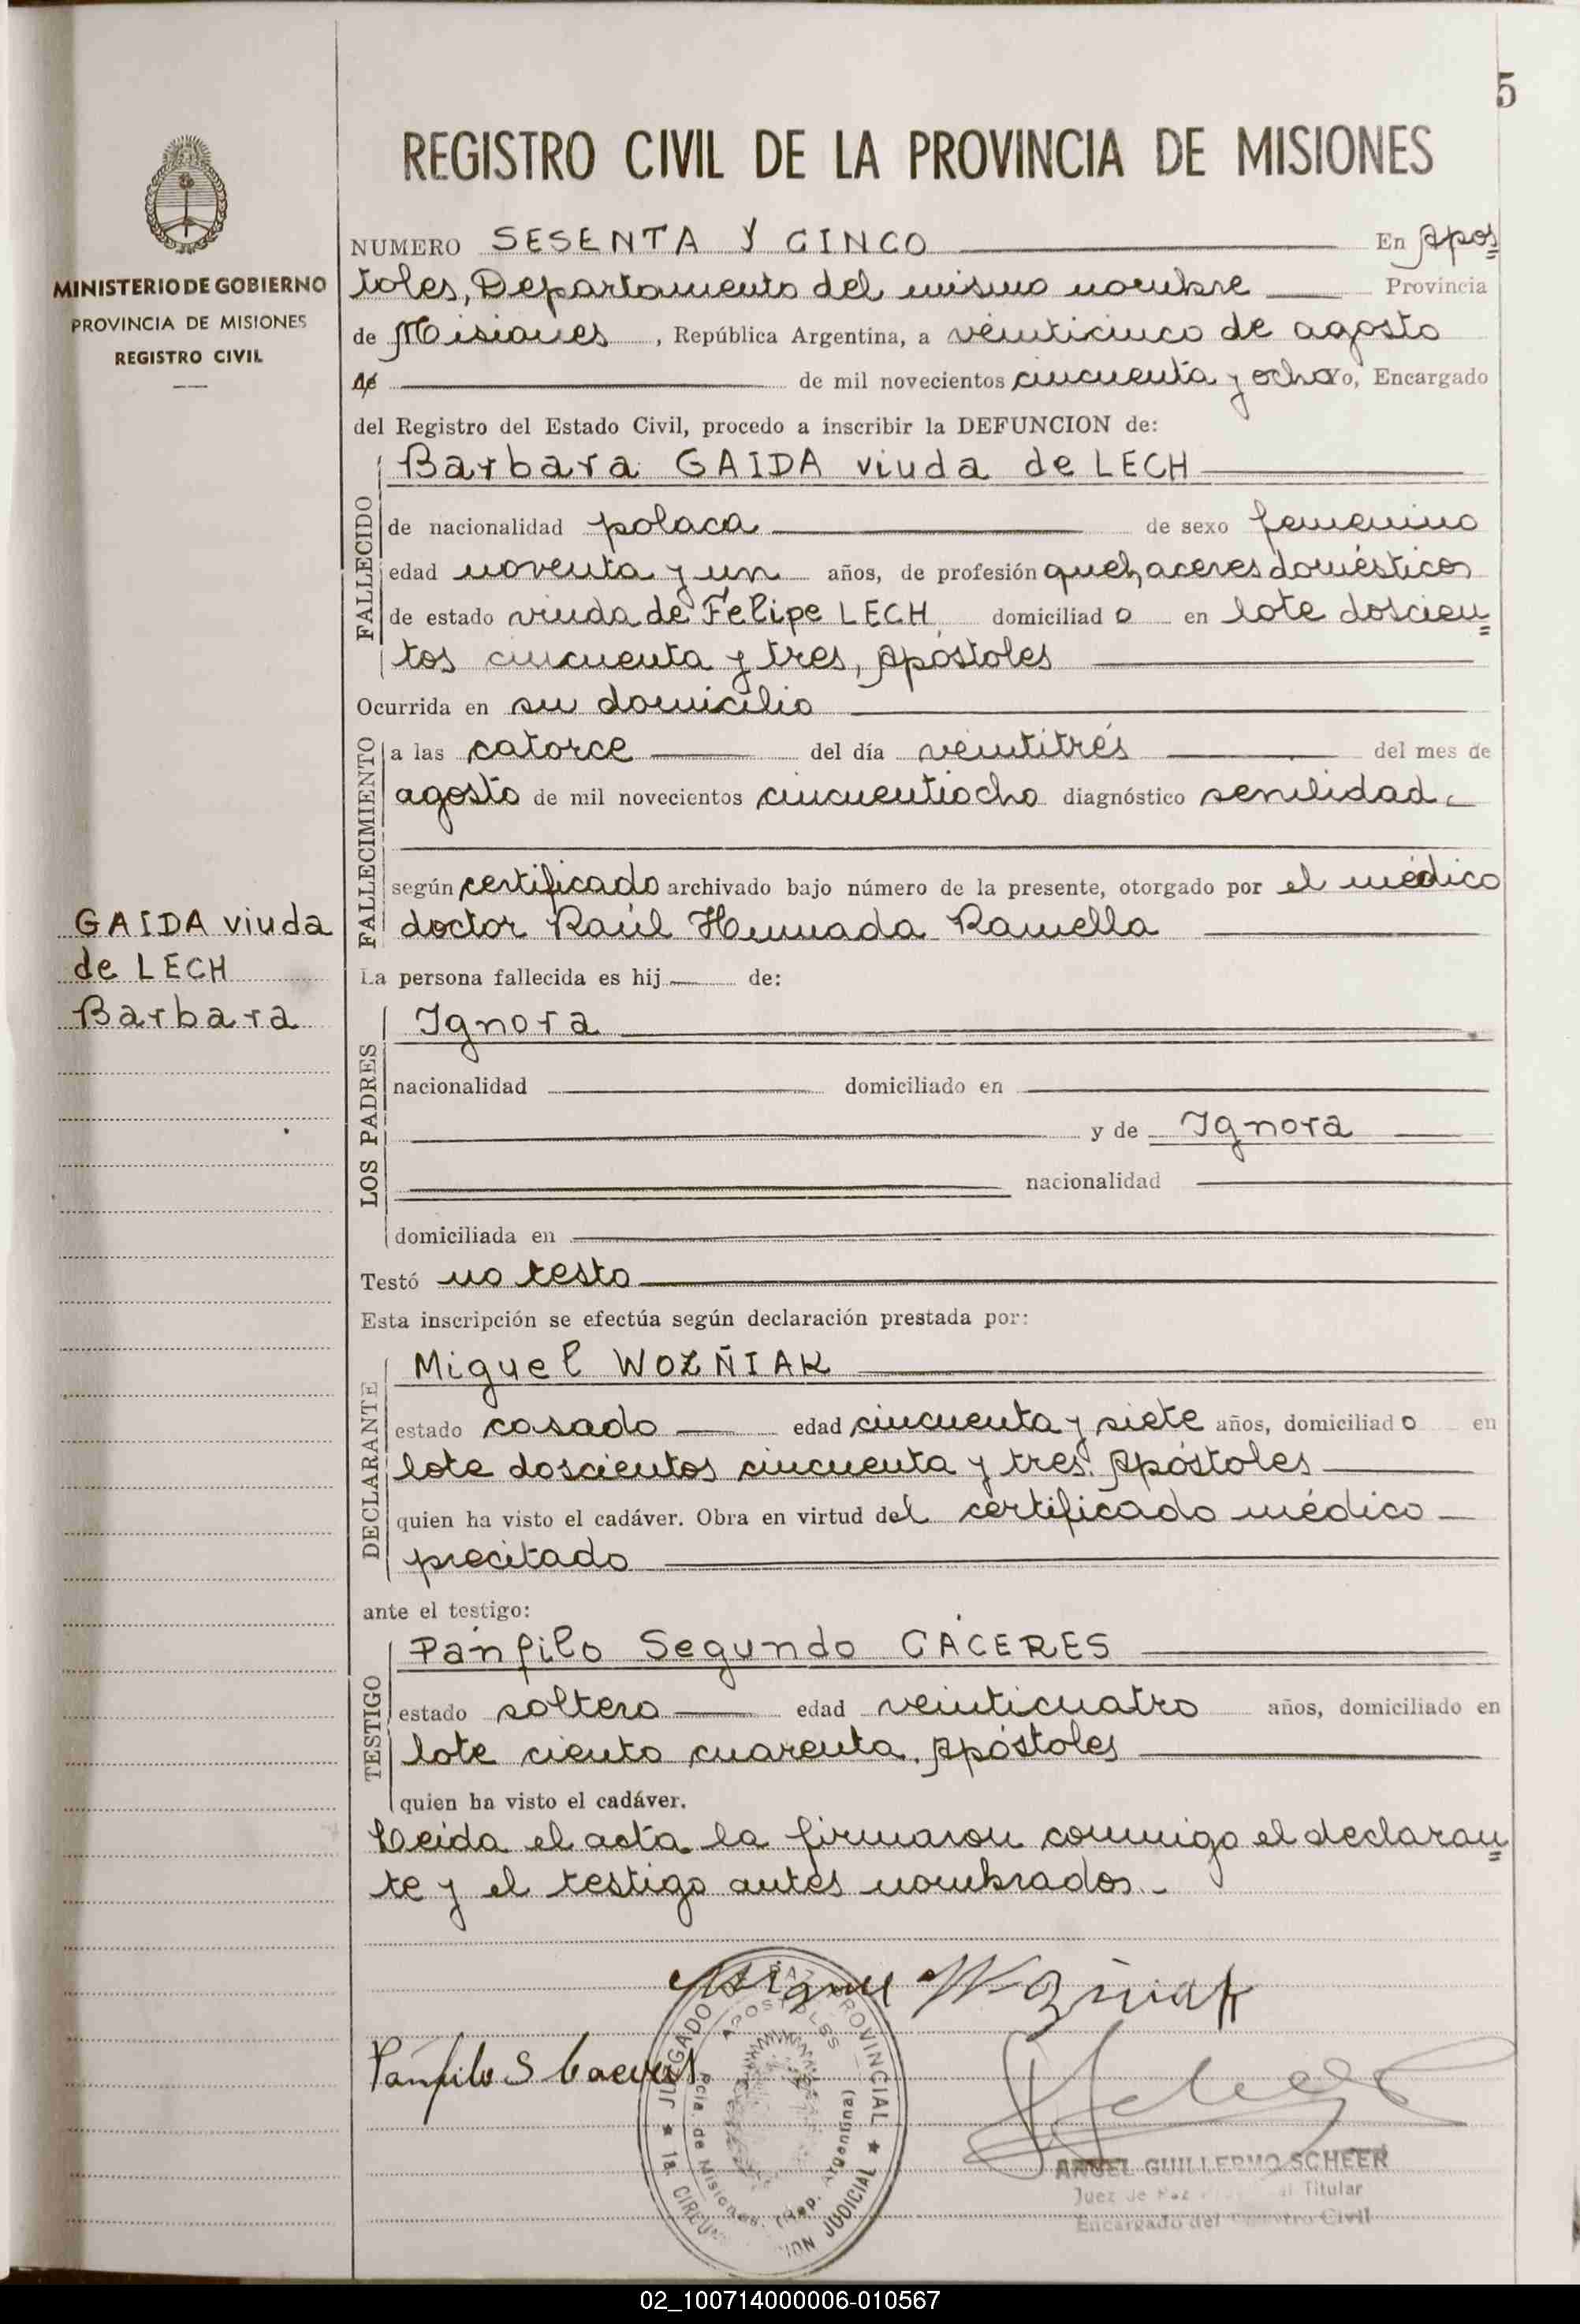 5
REGISTRO CIVIL DE LA PROVINCIA DE MISIONES
MINISTERIO DE GOBIERNO
PROVINCIA DE MISIONES
REGISTRO CIVIL
NUMERO SESENTA Y CINCO En Apos
toles, Departamento del mismo nombre Provincia
de Misiones, República Argentina, a veinticinco de agosto
de de mil novecientos cincuenta y ocho Yo, Encargado
del Registro del Estado Civil, procedo a inscribir la DEFUNCION de:
FALLECIDO
Barbara GAIDA viuda de LECH
de nacionalidad polaca de sexo femenino
edad noventa y un años, de profesión quehaceres domésticos
de estado viuda de Felipe LECH, domiciliado en lote doscien
tos cincuenta y tres, Apóstoles
Ocurrida en su domicilio
FALLECIMIENTO
a las catorce del día veintitrés del mes de
agosto de mil novecientos cincuentiocho diagnóstico senilidad.
según certificado archivado bajo número de la presente, otorgado por el médico
doctor Raúl Ramella
GAIDA viuda
de LECH
Barbara
La persona fallecida es hij de:
LOS PADRES
Ignora
nacionalidad domiciliado en
y de Ignora
nacionalidad
domiciliada en
Testó no testo
Esta inscripción se efectúa según declaración prestada por:
DECLARANTE
Miguel WOZÑIAK
estado casado edad cincuenta y siete años, domiciliado en
lote doscientos cincuenta y tres. Apóstoles
quien ha visto el cadáver. Obra en virtud del certificado médico
precitado
ante el testigo:
TESTIGO
Pánfilo Segundo CÁCERES
estado soltero edad veinticuatro años, domiciliado en
lote ciento cuarenta, Apóstoles
quien ha visto el cadáver.
Leída el acta la firmaron conmigo el declaran
te y el testigo antes nombrados.-
Miguel Wozniak
Pánfilo S Caceres
JUZGADO PAZ PROVINCIAL
APOSTOLES
Pcia. de Misiones. (Rep. Argentina)
1a. JUDICIAL
ANGEL GUILLERMO SCHEER
Juez de Paz Titular
Encargado del Registro Civil
02_100714000006-010567